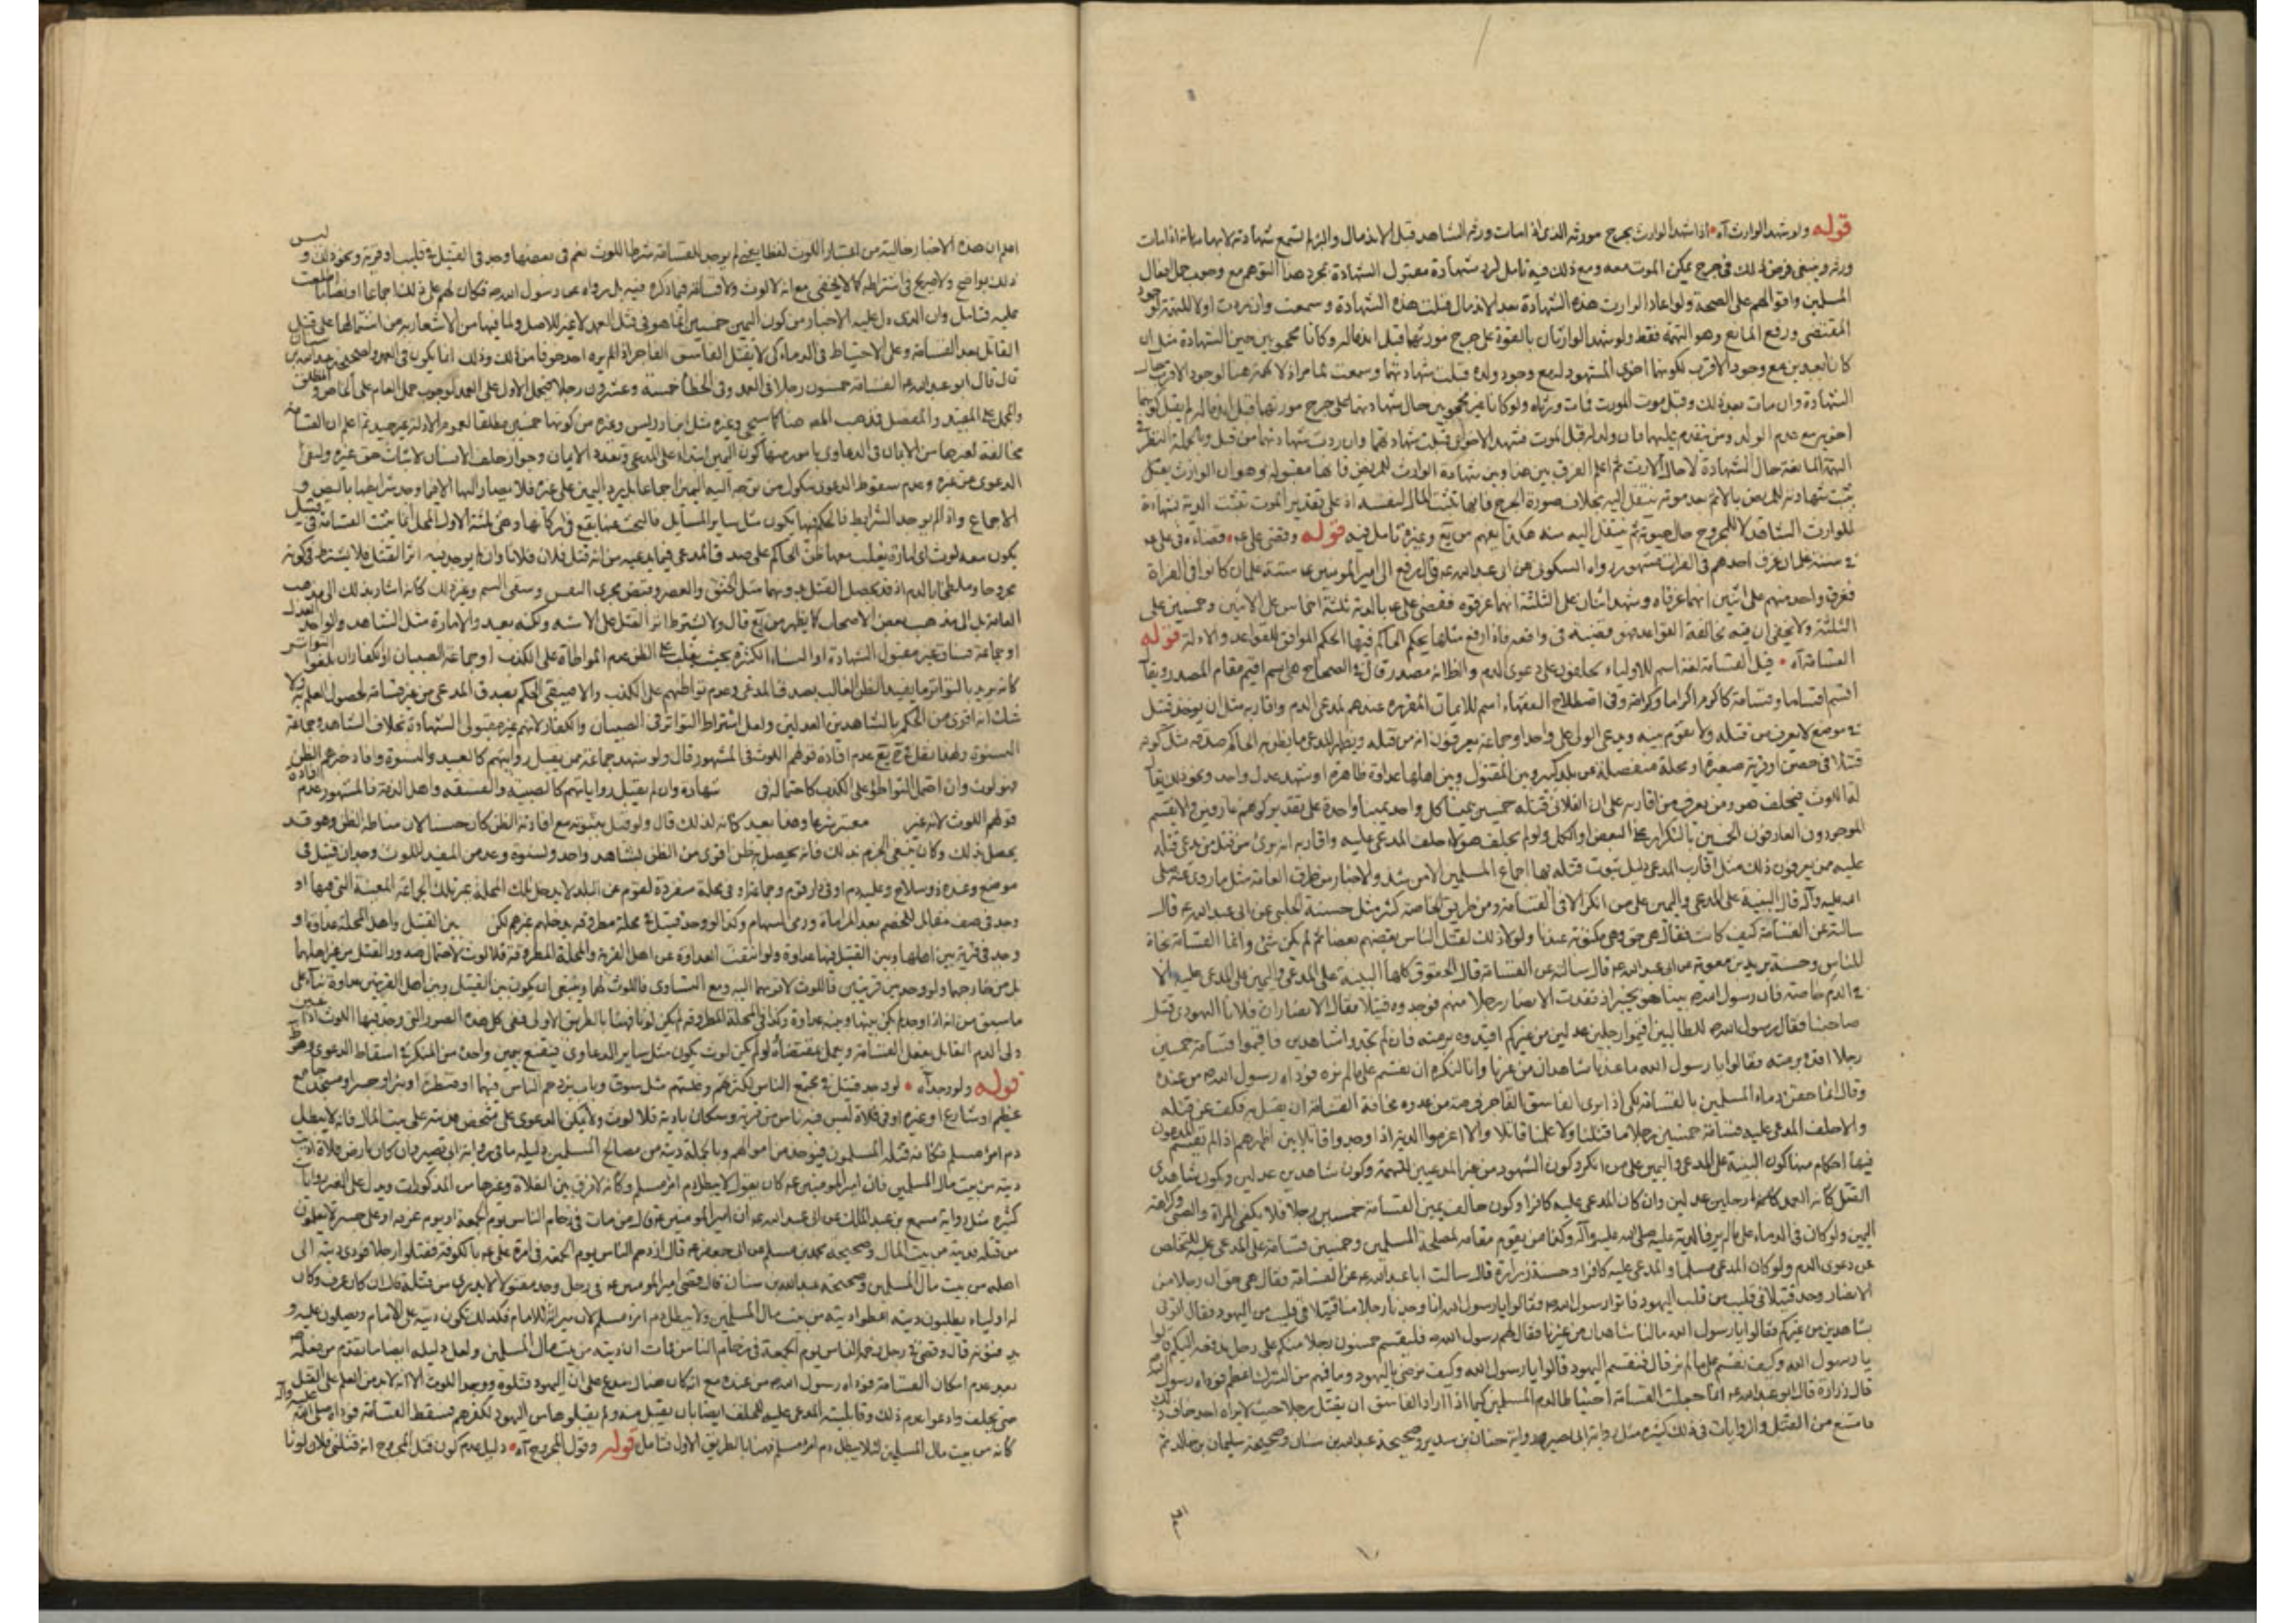 قوله ولو شهد الوارث آه اذا شهد الوارث بجرح مورثه الذى اذا مات ورثه الشاهد قبل الاندمال والبرء لم تسمع شهادته لانها
ورثه وينبغى فرض ذلك فى جرح يمكن الموت معه ومع ذلك فيه تامل لرد شهادة مقبول الشهادة بمجرد هذا التوهم مع وجوب حمل افعال
المسلمين واقوالهم على الصحة ولو اعاد الوارث هذه الشهادة بعد الاندمال قبلت هذه الشهادة وسمعت وان ردت اولا للتهمة لوجود
المقتضى ورفع المانع وهو التهمة فقط ولو شهد الوارثان بالقوة على جرح مورثهما قبل اندماله وكانا محجوبين حين الشهادة مثل ان
كانا بعيدين مع وجود الاقرب لكونهما اخوى المشهود له مع وجود ولده قبلت شهادتهما وسمعت لما مر اذ لا تهمة هنا لوجود الاقرب حال
الشهادة وان مات بعد ذلك وقبل موت المورث فمات ورثاه ولو كانا غير محجوبين حال شهادتهما على جرح مورثهما قبل اندماله لم يقبل لكونهما
اخويه مع عدم الولد ومن يتقدم عليهما فان ولد له قبل الموت فشهد الاخوان قبلت شهادتهما وان ردت شهادتهما من قبل وبالجملة النظر فى
التهمة المانعة حال الشهادة لا حال الارث ثم اعلم الفرق بين هذا وبين شهادة الوارث للمريض فانها مقبولة وهو ان الوارث يقبل
يثبت شهادته للمريض بالا ثم بعد موته ينتقل اليه بخلاف صورة الجرح فانها تثبت المال لنفسه اذ على تقدير الموت تثبت الدية بشهادة
للوارث الشاهد لا للمجروح حال حيوته ثم ينتقل اليه منه هكذا يفهم من يع وغيره تامل فيه قوله وقضى على ع قضاءه فى على ع
فى ستة غلمان غرق احدهم فى الفرات مشهور رواه السكونى عن ابى عبد الله ع قال رفع الى امير المومنين ع ستة غلمان كانوا فى الفراة
فغرق واحد منهم على اثنين انهما غرقاه وشهد اثنان على الثلثة انهم غرقوه فقضى على ع بالدية ثلثة اخماس على الاثنين وخمسين على
الثلثة ولا يخفى ان فيه مخالفة القواعد فهو قضية فى واقعة فاذا رفع مثلها يحكم الحاكم فيها الحكم الموافق للقواعد والادلة قوله
القسامة آه قيل القسامة لغة اسم للاولياء يحلفون على دعوى الدم والظ انه مصدر قال فى الصحاح هى اسم اقيم مقام المصدر ويقال
اقسم اقساما وقسامة كاكرم اكراما وكرامة وفى اصطلاح الفقهاء اسم للايمان المقررة عندهم لمدعى الدم واقاربه مثل ان يوجد قتيل
فى موضع لا يعرف من قتله ولا تقوم بينه ويدعى الولى على واحد او جماعة يعرفون انه من قتله ويظهر للمدعى ما يظن به الحاكم صدقه مثل كونه
قتيلا فى حصن او قرية صغيرة او محلة منفصلة عن بلد كبير وبين المقتول وبين اهلها عداوة ظاهرة او شهد عدل واحد ونحو ذلك يقال
لها اللوث فيحلف هو ومن يعرف من اقاربه على ان الفلانى قتله خمسين يمينا كل واحد يمينا واحدة على تقدير كونهم عارفين والا يقسم
الموجودون العارفون الخمسين بالتكرار على البعض او الكل ولو لم يحلف هؤلاء حلف المدعى عليه واقاربه انه برئ من قتل من يدعى قتله
عليه ممن يعرفون ذلك مثل اقارب المدعى دليل ثبوت قتله بها اجماع المسلمين الا من شذ والاخبار من طرف العامة مثل ما روى عنه صلى
الله عليه وآله قال البينة على المدعى واليمين على من انكر الا فى القسامة ومن طريق الخاصة كثيرة مثل حسنة الحلبى عن ابى عبد الله ع قال
سالته عن القسامة كيف كانت فقال هى حق وهى مكتوبة عندنا ولولا ذلك لقتل الناس بعضهم بعضا ثم لم يكن شئ وانما القسامة نجاة
للناس وحسنة بريد بن معوية عن ابى عبد الله ع قال سالته عن القسامة قال الحقوق كلها البينة على المدعى واليمين على المدعى عليه الا
فى الدم خاصة فان رسول الله ص بينا هو بخيبر اذ فقدت الانصار رجلا منهم فوجدوه قتيلا فقال الانصار ان فلانا اليهودى قتل
صاحبنا فقال رسول الله ص للطالبين اقيموا رجلين عدلين من غيركم اقيده برمته فان لم تجدوا شاهدين فاقيموا قسامة خمسين
رجلا اقده برمته فقالوا يا رسول الله ما عندنا شاهدان من غيرنا وانا لنكره ان نقسم على ما لم نره فوداه رسول الله ص من عنده
وقال انما حقن دماء المسلمين بالقسامة لكى اذا راى الفاسق الفاجر فرصة من عدوه مخافة القسامة ان يقتل به فكف عن قتله
والا حلف المدعى عليه قسامة خمسين رجلا ما قتلنا ولا علمنا قاتلا والا اغرموا الدية اذا وجدوا قتيلا بين اظهرهم اذا لم يقسم المدعون
فيها احكام منها كون البينة على المدعى واليمين على من انكر وكون الشهود من غير المدعيين للتهمة وكون شاهدين عدلين ويكون شاهدى
القتل كانه العمد رجلين عدلين وان كان المدعى عليه كافرا وكون حالف يمين القسامة خمسين رجلا فلا يكفى المراة والصبى وكراهة
اليمين ولو كان فى الدماء على ما لم ير فالدية عليه صلى الله عليه وآله وكذا من يقوم مقامه لمصلحة المسلمين وخمسين قسامة على المدعى عليه للتخلص
عن دعوى الدم ولو كان المدعى مسلما والمدعى عليه كافرا وحسنة زرارة قال سالت ابا عبد الله ع عن القسامة فقال هى حق ان رجلا من
الانصار وجد قتيلا فى قليب من قلب اليهود فاتوا رسول الله ص فقالوا يا رسول الله انا وجدنا رجلا منا قتيلا فى قليب من اليهود فقال ائتونى
بشاهدين من غيركم فقالوا يا رسول الله ما لنا شاهدان من غيرنا فقال لهم رسول الله ص فليقسم خمسون رجلا منكم على رجل ندفعه اليكم قالوا
يا رسول الله وكيف نقسم على ما لم نر قال فيقسم اليهود قالوا يا رسول الله وكيف نرضى باليهود وما فيهم من الشرك اعظم فوداه رسول الله
قال زرارة قال ابو عبد الله ع انما جعلت القسامة احتياطا لدم المسلمين كيما اذا اراد الفاسق ان يقتل رجلا حيث لا يراه احد خاف ذلك
فامتنع من القتل والروايات فى ذلك كثيرة مثل رواية ابى بصير ورواية حنان بن سدير وصحيحة عبد الله بن سنان وصحيحة سليمان بن خالد ثم
اعلم ان هذه الاخبار خالية من اعتبار اللوث لفظا يعنى لم يوجد للقسامة شرط اللوث نعم فى بعضها وجد القتيل فى قليب او قرية ونحو ذلك وليس
ذلك بواضح ولا صريح فى اشتراطه كما لا يخفى مع انه لا لوث ولا قسامة فيما ذكره فيه بل رواه عن رسول الله ص فكان لهم على ذلك اجماعا او نصا ما اطلعت
عليه فتامل وان الذى دل عليه الاخبار من كون اليمين خمسين انما هو فى قتل العمد لا غير للاصل ولما فيها من الاشعار به من اشتمالها على قتل
القاتل بعد القسامة وعلى الاحتياط فى الدماء كى لا يقتل الفاسق الفاجر اذ لم يره احد خوفا من ذلك وذلك انما يكون فى العمد وصحيحة عبد الله بن سنان
قال قال ابو عبد الله ع القسامة خمسون رجلا فى العمد وفى الخطأ خمسة وعشرون رجلا فيحمل الاول على العمد لوجوب حمل العام على الخاص والمطلق
والمجمل على المقيد والمفصل فذهب المص هنا كما سيجى وغيره مثل ابن ادريس وغيره من كونها خمسين مطلقا لعموم الادلة غير جيد ثم اعلم ان القسامة
مخالفة لغيرها من الايمان فى الدعاوى بامور منها كون اليمين ابتداء على المدعى وتعدد الايمان وجواز حلف الانسان لاثبات حق غيره ولنفى
الدعوى عن غيره وعدم سقوط الدعوى بنكول من توجه اليه اليمين اجماعا بل يرد اليمين على غيره فلا يصار اليها الا فيما وجد شرائطها بالنص و
الاجماع واذا لم يوجد الشرايط فالحكم فيها يكون مثل ساير المسايل فالبحث هنا يقع فى اركانها وهى ثلثة الاول المحل انما يثبت القسامة فى قتيل
يكون معه لوث اى امارة يغلب معها ظن الحاكم على صدق المدعى فيما يدعيه من انه قتل فلان فلانا وان لم يوجد فيه اثر القتل فلا يشترط فى كونه
مجروحا وملطخا بالدم اذ قد يحصل القتل بدونهما مثل الخنق والعصر وقبض مجرى النفس وسقى السم وغير ذلك كانه اشار بذلك الى مذهب
العامة بل الى مذهب بعض الاصحاب كما يظهر من يع قال ولا يشترط اثر القتل على الاشبه ولكنه بعيد والامارة مثل الشاهد والواحد العدل
او جماعة فساق غير مقبول الشهادة او النساء الكثيرة بحيث يغلب على الظن عدم المواطاة على الكذب او جماعة الصبيان او الكفار ان بلغوا التواتر
كانه يريد بالتواتر ما يفيد الظن الغالب بصدق المدعى وعدم تواطئهم على الكذب والا فيبقى الحكم بصدق المدعى من غير قسامة لحصول العلم به ولا
شك انه اقوى من الحكم بالشاهدين العدلين ولعل اشتراط التواتر فى الصبيان والكفار لانهم غير مقبولى الشهادة بخلاف الشاهد وجماعة
النسوة ولهذا نقل فى ح يع عدم افادة قولهم اللوث فى المشهور قال ولو شهد جماعة ممن يقبل روايتهم كالعبيد والنسوة وافاد خبرهم الظن
فهو لوث وان احتمل التواطؤ على الكذب كاحتماله فى شهادة وان لم يقبل رواياتهم كالصبية والفسقة واهل الذمة فالمشهور عدم افادة
قولهم اللوث لانه غير معتبر شرعا وهذا بعيد كانه لذلك قال ولو قيل بثبوته مع افادته الظن كان حسنا لان مناط الظن وهو قد
يحصل بذلك وكان ينبغى الجزم بذلك فانه يحصل به ظن اقوى من الظن لشاهد واحد ولنسوة وعد من المفيد للوث وجدان قتيل فى
موضع وعنده ذو سلاح وعليه دم او فى دار قوم وجماعة او فى محلة منفردة لقوم عن البلد لا يدخل تلك المحلة غير تلك الجماعة المعينة التى فيها او
وجد فى صف مقابل للخصم بعد المراماة ورمى السهام وكذا لو وجد قتيل فى محلة مطروقة يدخلهم غيرهم لكن بين القتيل واهل المحلة عداوة او
وجد فى قرية بين اهلها وبين القتيل فيها عداوة ولو انتفت العداوة عن اهل القرية والمحلة المطروقة فلا لوث لاحتمال صدور القتل من غير اهلها
بل من خارجها ولو وجد بين قريتين فاللوث لاقربهما اليه ومع التساوى فاللوث لهما وينبغى ان يكون بين القتيل وبين اهل القريتين عداوة بناء على
ما سبق من انه اذا وجد ولم يكن بينها وبينه عداوة وكذا فى المحلة المطروقة لم يكن لوثا فهنا بالطريق الاولى ففى كل هذه الصور التى وجد فيها اللوث اذا عين
ولى الدم القاتل بفعل القسامة ويعمل بمقتضاه لو لم يكن لوث يكون مثل ساير الدعاوى فيقنع بيمين واحدة من المنكر فى اسقاط الدعوى وهو
قوله ولو وجد آه لو وجد قتيل فى مجمع الناس لكثرتهم وغلبتهم مثل سوق وباب يزدحم الناس فيها او قنطرة او بئر او جسر او مسجد جامع
عظيم او شارع او غيره او فى فلاة ليس فيه ناس من قرية وسكان بادية فلا لوث ولا يمكن الدعوى على شخص فديته على بيت المال فانه لا يبطل
دم امرا مسلم فكانه قتله المسلمون فيؤخذ من اموالهم وبالجملة ديته من مصالح المسلمين دليله ما فى رواية ابى بصير وان كان بارض فلاة اديت
ديته من بيت مال المسلمين فان امير المومنين ع كان يقول لا يبطل دم امرء مسلم وكانه لا فرق بين الفلاة وغيرها من المذكورات ويدل على الغير روايات
كثيرة مثل رواية مسمع بن عبد الملك عن ابى عبد الله ع ان امير المومنين ع قال من مات فى زحام الناس يوم الجمعة او يوم عرفة او على جسر لا يعلمون
من قتله فديته من بيت المال وصحيحة محمد بن مسلم عن ابى جعفر ع قال ازدحم الناس يوم الجمعة فى امرة على ع بالكوفة فقتلوا رجلا فودى ديته الى
اهله من بيت مال المسلمين وصحيحة عبد الله بن سنان قال قضى امير المومنين ع فى رجل وجد مقتولا لا يدرى من قتله قال ان كان عرف وكان
له اولياء يطلبون ديته اعطوا ديته من بيت مال المسلمين ولا يبطل دم امرء مسلم لان ميراثه للامام فكذلك تكون ديته على الامام ويصلون عليه و
يدفنونه قال وقضى فى رجل زحمه الناس يوم الجمعة فى زحام الناس فمات ان ديته من بيت مال المسلمين ولعل دليله ايضا ما تقدم من فعله ص
بعد عدم امكان القسامة فوداه رسول الله ص من عنده مع انه كان هناك مدع على ان اليهود قتلوه ووجد اللوث الا انه لا بد من العلم على القتل
حتى يحلف وادعوا عدم ذلك وقابلية المدعى عليه للحلف ايضا بان يقبل منه ولم يقبلوها من اليهود لكفرهم فسقط القسامة فوداه صلى الله عليه وآله
كانه من بيت مال المسلمين لئلا يبطل دم امرء مسلم فهنا بالطريق الاولى فتامل قوله وقول المجروح آه دليل عدم كون قتل المجروح انه قتلنى فلان لوثا